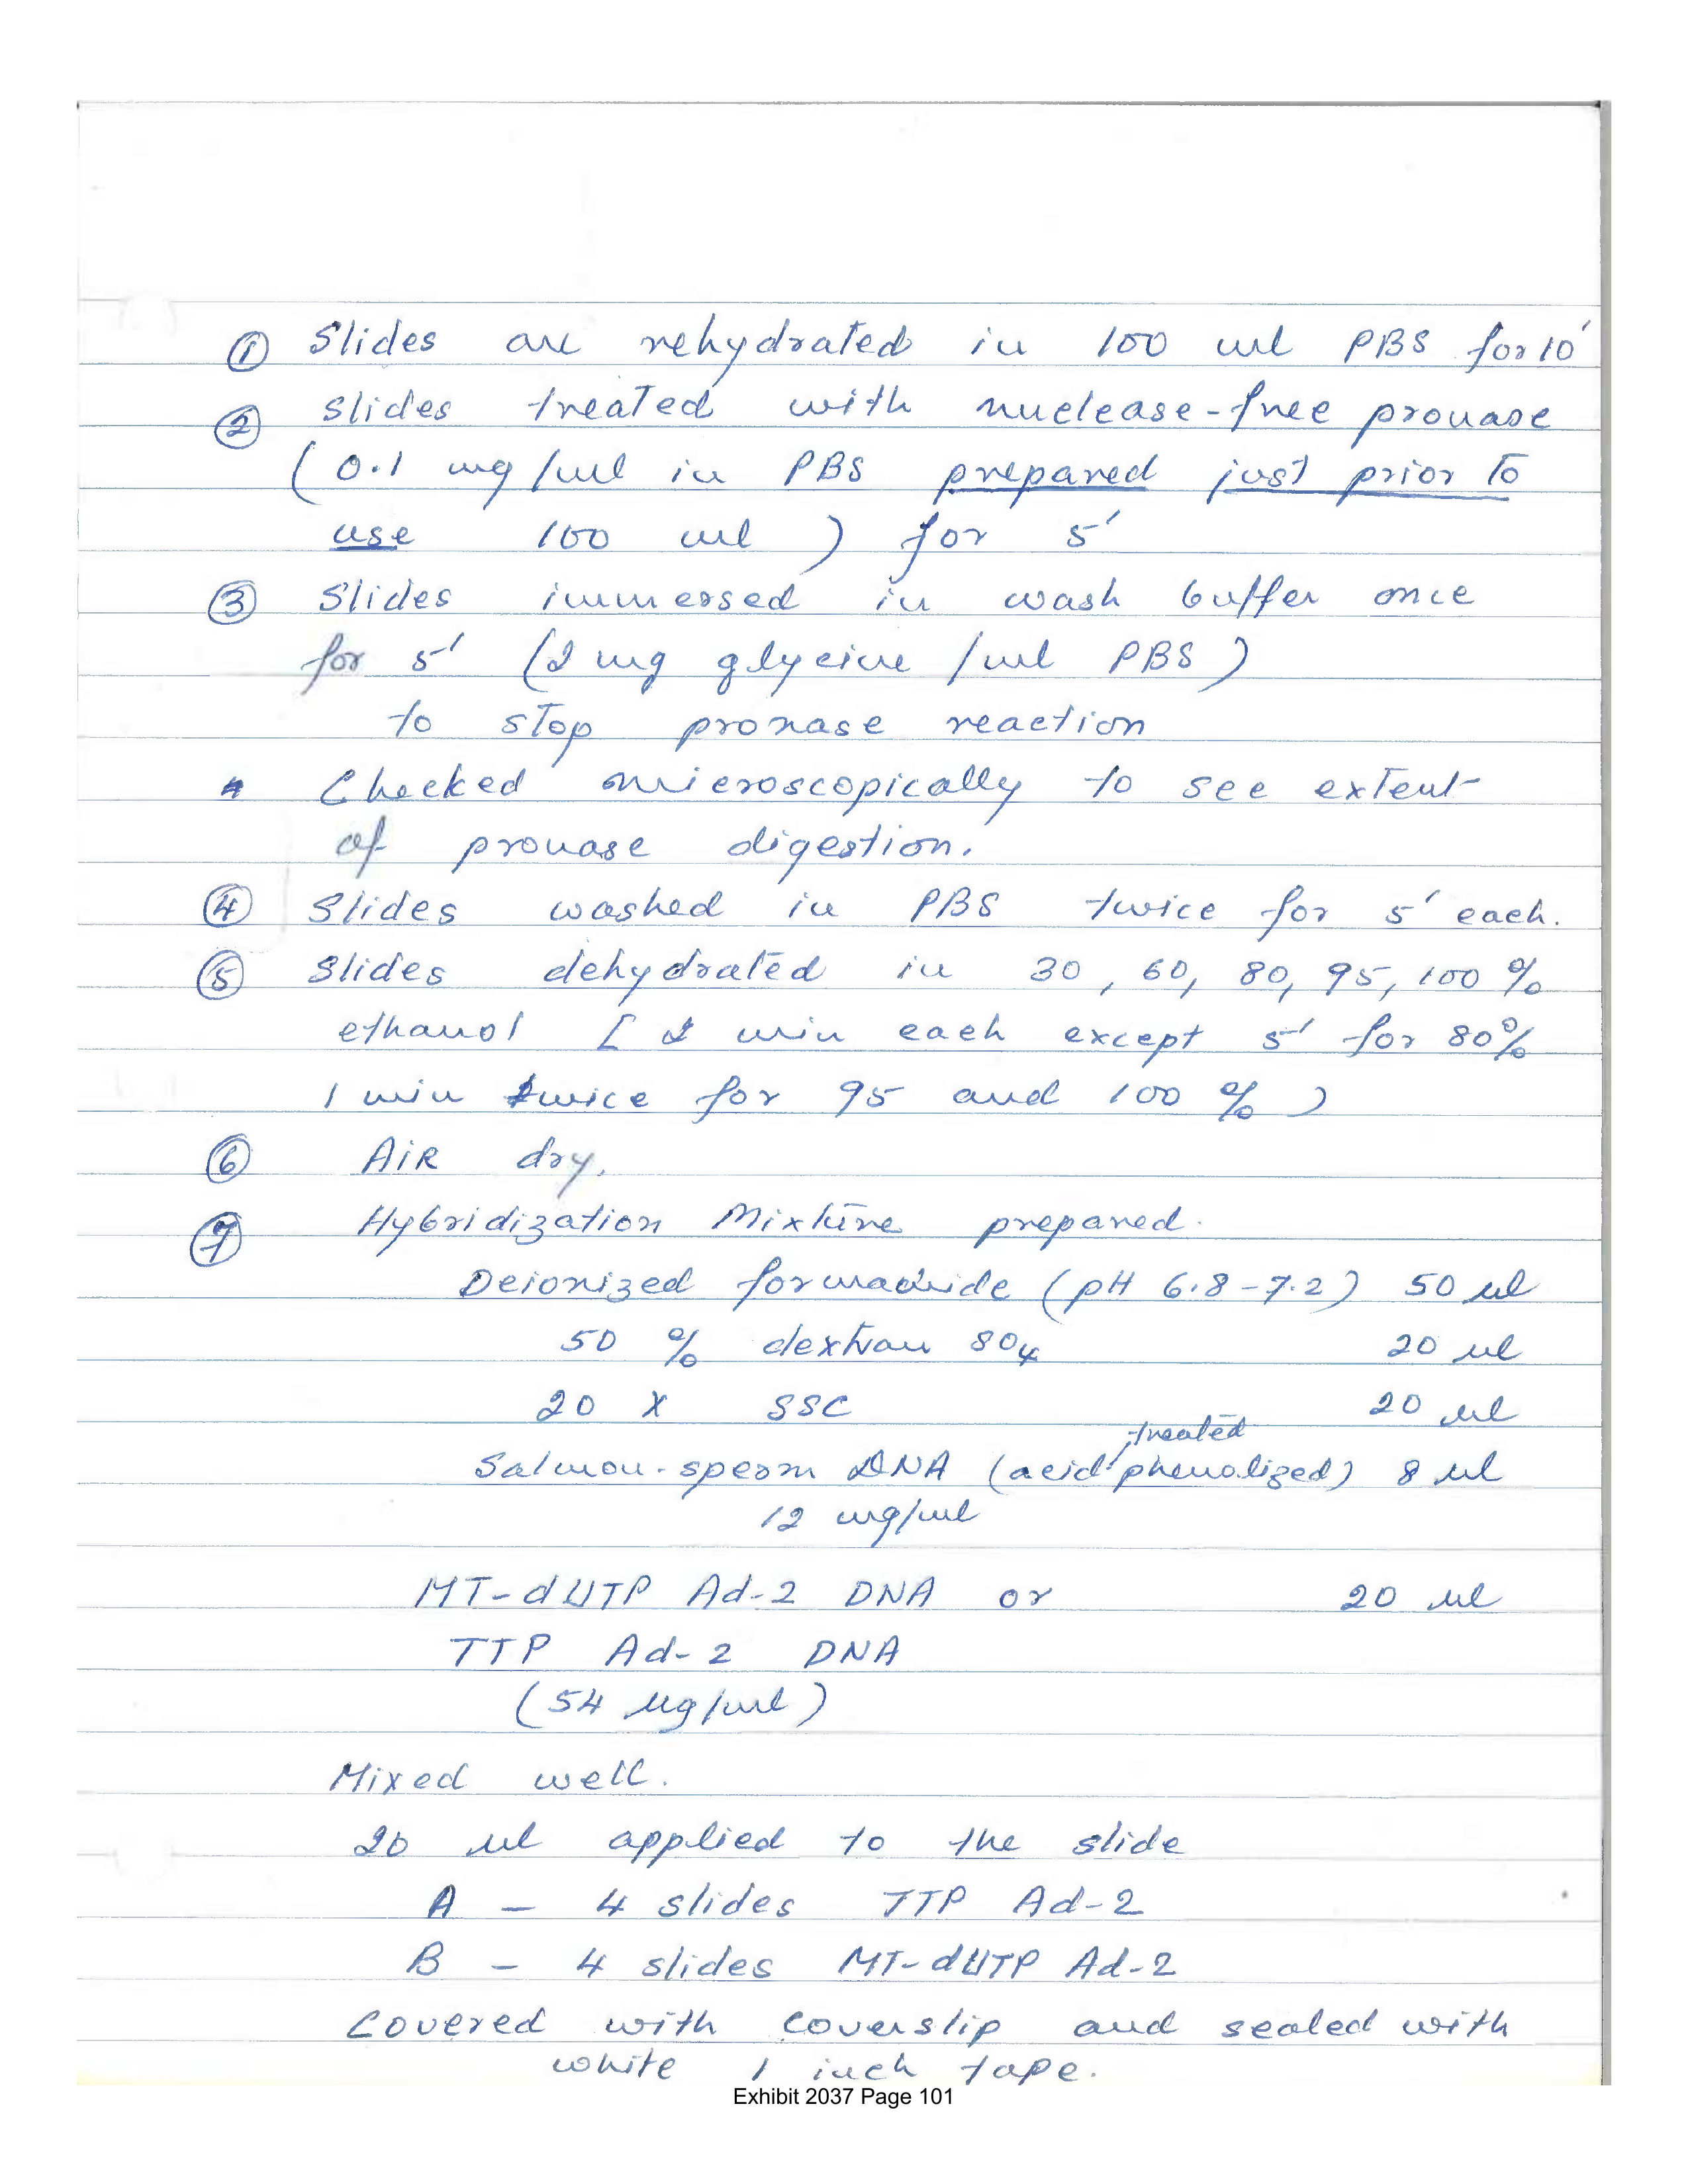 ① Slides are rehydrated in 100 ml PBS for 10'
② Slides treated with nuclease-free pronase
(0.1 mg/ml in PBS prepared just prior to
use 100 ml) for 5'
③ Slides immersed in wash buffer once
for 5' (2 mg glycine /ml PBS)
to stop pronase reaction
* Checked microscopically to see extent
of pronase digestion.
④ Slides washed in PBS twice for 5' each.
⑤ Slides dehydrated in 30, 60, 80, 95, 100 %
ethanol [ 2 min each except 5' for 80%
1 min twice for 95 and 100 % )
⑥ AiR dry.
⑦ Hybridization Mixture prepared.
Deionized formamide (pH 6.8-7.2) 50 µl
50 % dextran SO4 20 µl
20 X SSC 20 µl
treated
Salmon-sperm DNA (acid phenolized) 8 µl
12 mg/ml
MT-dUTP Ad-2 DNA or 20 µl
TTP Ad-2 DNA
(54 µg/ml)
Mixed well.
20 µl applied to the slide
A - 4 slides TTP Ad-2
B - 4 slides MT-dUTP Ad-2
Covered with coverslip and sealed with
white 1 inch tape.
Exhibit 2037 Page 101